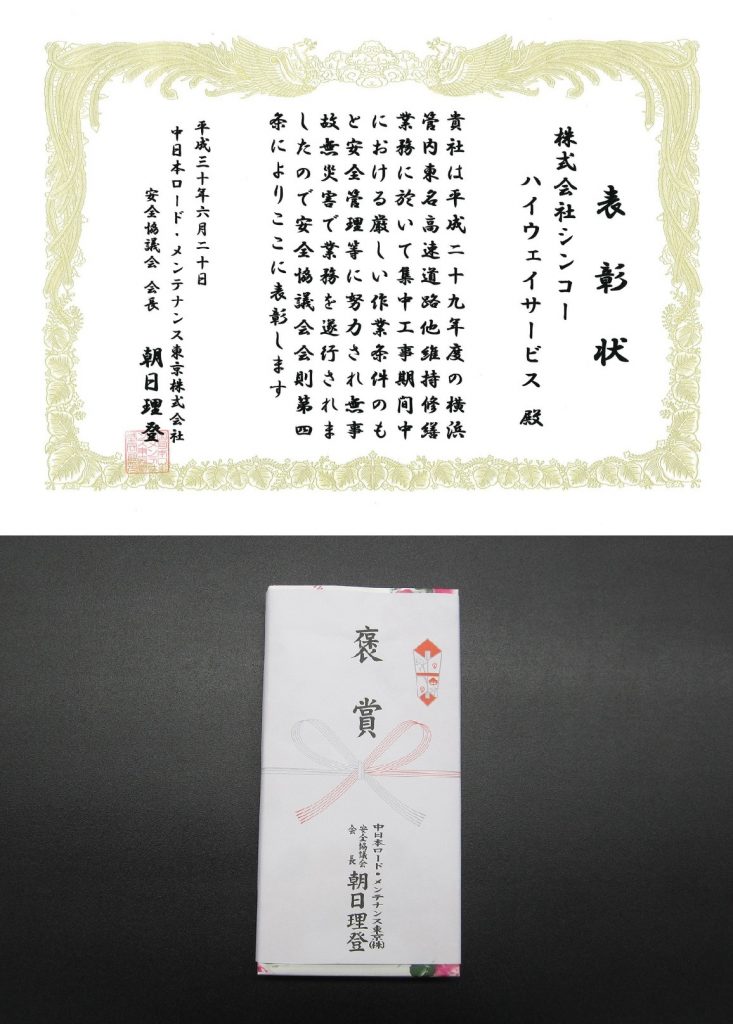 表彰状
株式会社シンコー
ハイウェイサービス 殿
貴社は平成二十九年度の横浜
管内東名高速道路他維持修繕
業務に於いて集中工事期間中
における厳しい作業条件のも
と安全管理等に努力され無事
故無災害で業務を遂行されま
したので安全協議会会則第四
条によりここに表彰します
平成三十年六月二十日
中日本ロード・メンテナンス東京株式会社
安全協議会 会長
朝日理登
褒賞
中日本ロード・メンテナンス東京(株)
安全協議会
会長
朝日理登